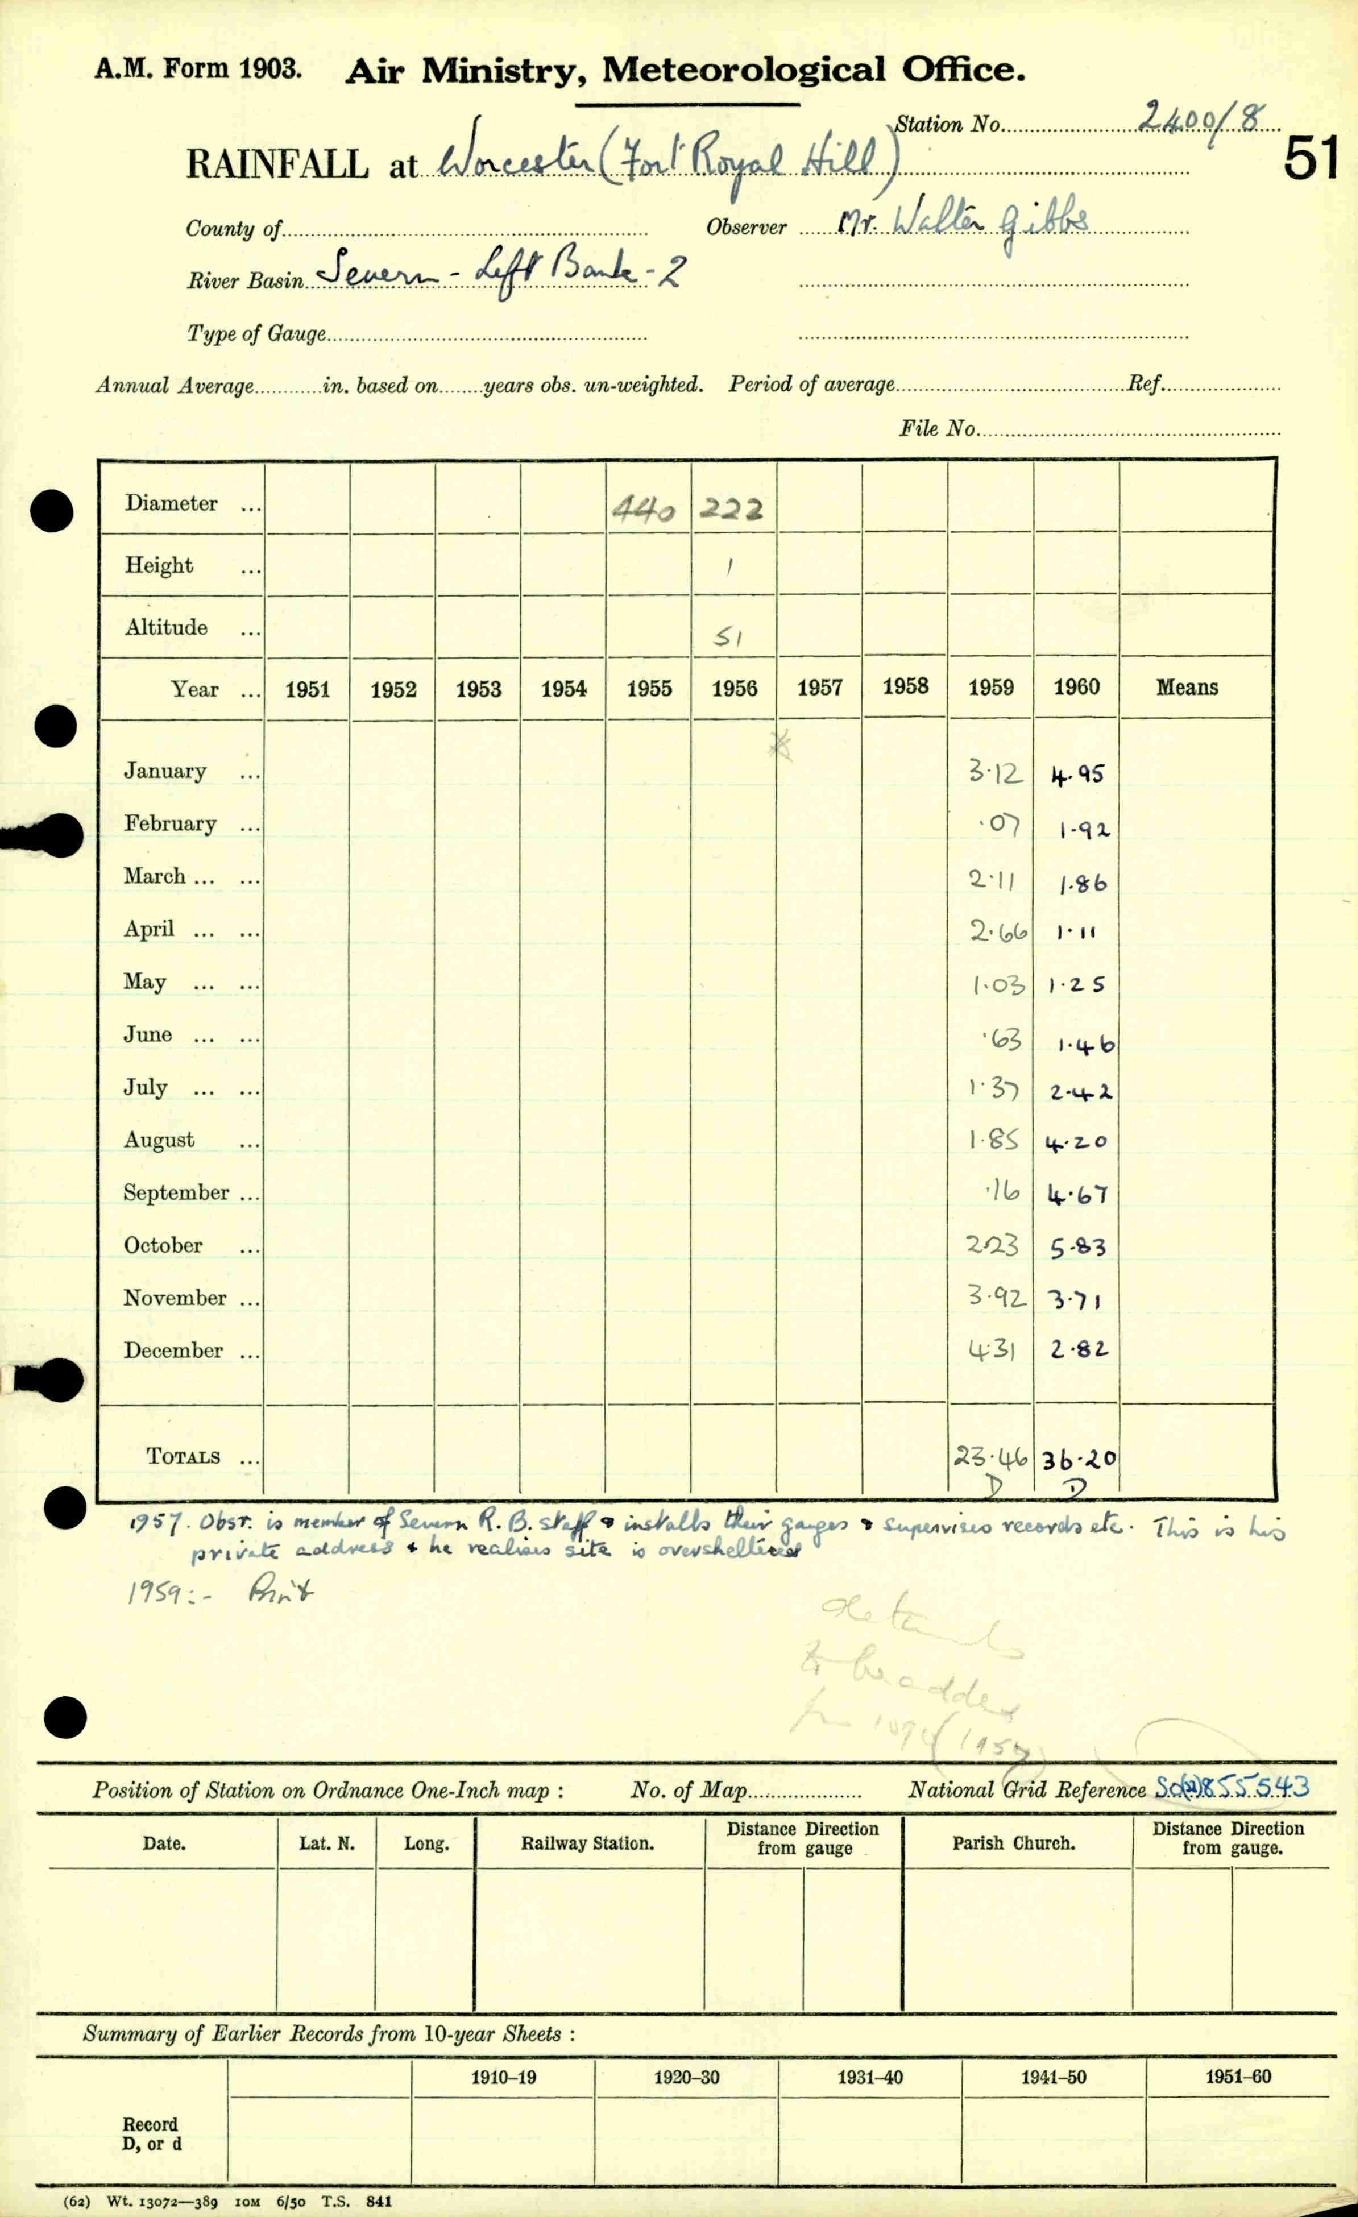 A.M. Form 1903. Air Ministry, Meteorological Office.
Station No. 2400/8
51
RAINFALL at Worcester (Fort Royal Hill)
County of Observer Mr. Walter Gibbs
River Basin Severn - Left Bank - 2
Type of Gauge
Annual Average in. based on years obs. un-weighted. Period of average Ref.
File No.
Diameter ... 440 222
Height ... 1
Altitude ... 51
Year ... 1951 1952 1953 1954 1955 1956 1957 1958 1959 1960 Means
January ... 3·12 4·95
February ... ·07 1·92
March ... ... 2·11 1·86
April ... ... 2·66 1·11
May ... ... 1·03 1·25
June ... ... ·63 1·46
July ... ... 1·37 2·42
August ... 1·85 4·20
September ... ·16 4·67
October ... 2·23 5·83
November ... 3·92 3·71
December ... 4·31 2·82
TOTALS ... 23·46 36·20
D D
1957. Obsr. is member of Severn R.B. staff & installs their gauges & supervises records etc. This is his
private address & he realises site is oversheltered
1959:- Print
details
to be added
(1957)
Position of Station on Ordnance One-Inch map : No. of Map National Grid Reference 855543
Date. Lat. N. Long. Railway Station. Distance Direction from gauge Parish Church. Distance Direction from gauge.
Summary of Earlier Records from 10-year Sheets :
1910–19 1920–30 1931–40 1941–50 1951–60
Record
D, or d
(62) Wt. 13072—389 10M 6/50 T.S. 841